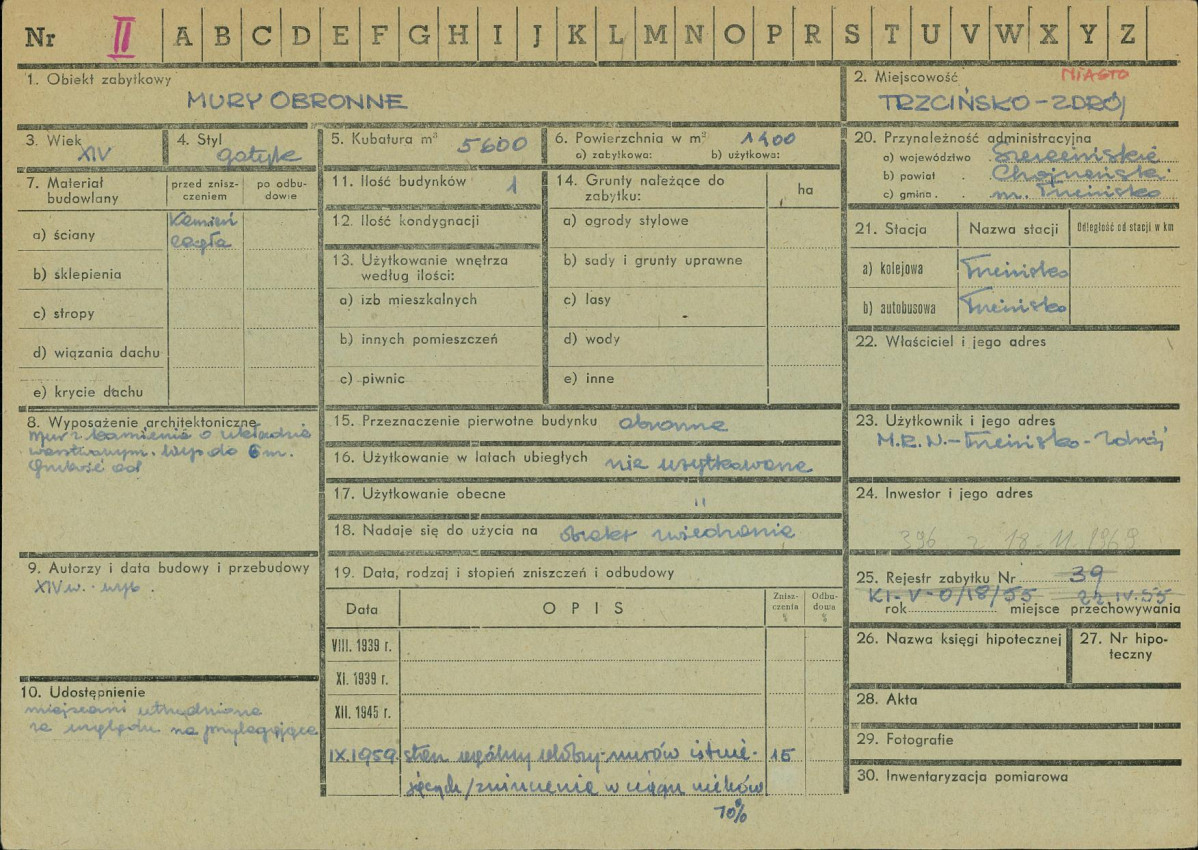 Nr II A B C D E F G H I J K L M N O P R S T U V W X Y Z
1. Obiekt zabytkowy
MURY OBRONNE
2. Miejscowość MIASTO
TRZCIŃSKO-ZDRÓJ
3. Wiek
XIV
4. Styl
gotyk
5. Kubatura m³ 5600
6. Powierzchnia w m² 1400
a) zabytkowa: b) użytkowa:
20. Przynależność administracyjna
a) województwo Szczecińskie
b) powiat . Chojneński
c) gmina . m. Trzcińsko
7. Materiał budowlany
przed zniszczeniem
po odbudowie
a) ściany
Kamień
cegła
b) sklepienia
c) stropy
d) wiązania dachu
e) krycie dachu
11. Ilość budynków 1
12. Ilość kondygnacji
13. Użytkowanie wnętrza
według ilości:
a) izb mieszkalnych
b) innych pomieszczeń
c) piwnic
14. Grunty należące do
zabytku:
ha
a) ogrody stylowe
b) sady i grunty uprawne
c) lasy
d) wody
e) inne
21. Stacja Nazwa stacji Odległość od stacji w km
a) kolejowa Trzcińsko
b) autobusowa Trzcińsko
22. Właściciel i jego adres
8. Wyposażenie architektoniczne
Mur z kamienia o układzie
warstwowym. Wys. do 6 m.
Grubość od
15. Przeznaczenie pierwotne budynku obronne
16. Użytkowanie w latach ubiegłych nie użytkowane
17. Użytkowanie obecne "
18. Nadaje się do użycia na obiekt zwiedzania
23. Użytkownik i jego adres
M.R.N.-Trzcińsko-Zdrój
24. Inwestor i jego adres
396 z 18.11.1969
9. Autorzy i data budowy i przebudowy
XIV w.
19. Data, rodzaj i stopień zniszczeń i odbudowy
Data OPIS Zniszczenia % Odbudowa %
VIII. 1939 r.
XI. 1939 r.
XII. 1945 r.
IX.1959 stan ogólny dobry murów istnie- 15
jących /zniszczenia w ciągu wieków
70%
25. Rejestr zabytku Nr 39
KI-V-0/18/55 22.IV.55
rok miejsce przechowywania
26. Nazwa księgi hipotecznej
27. Nr hipoteczny
10. Udostępnienie
miejscami utrudnione
ze względu na przylegające
28. Akta
29. Fotografie
30. Inwentaryzacja pomiarowa